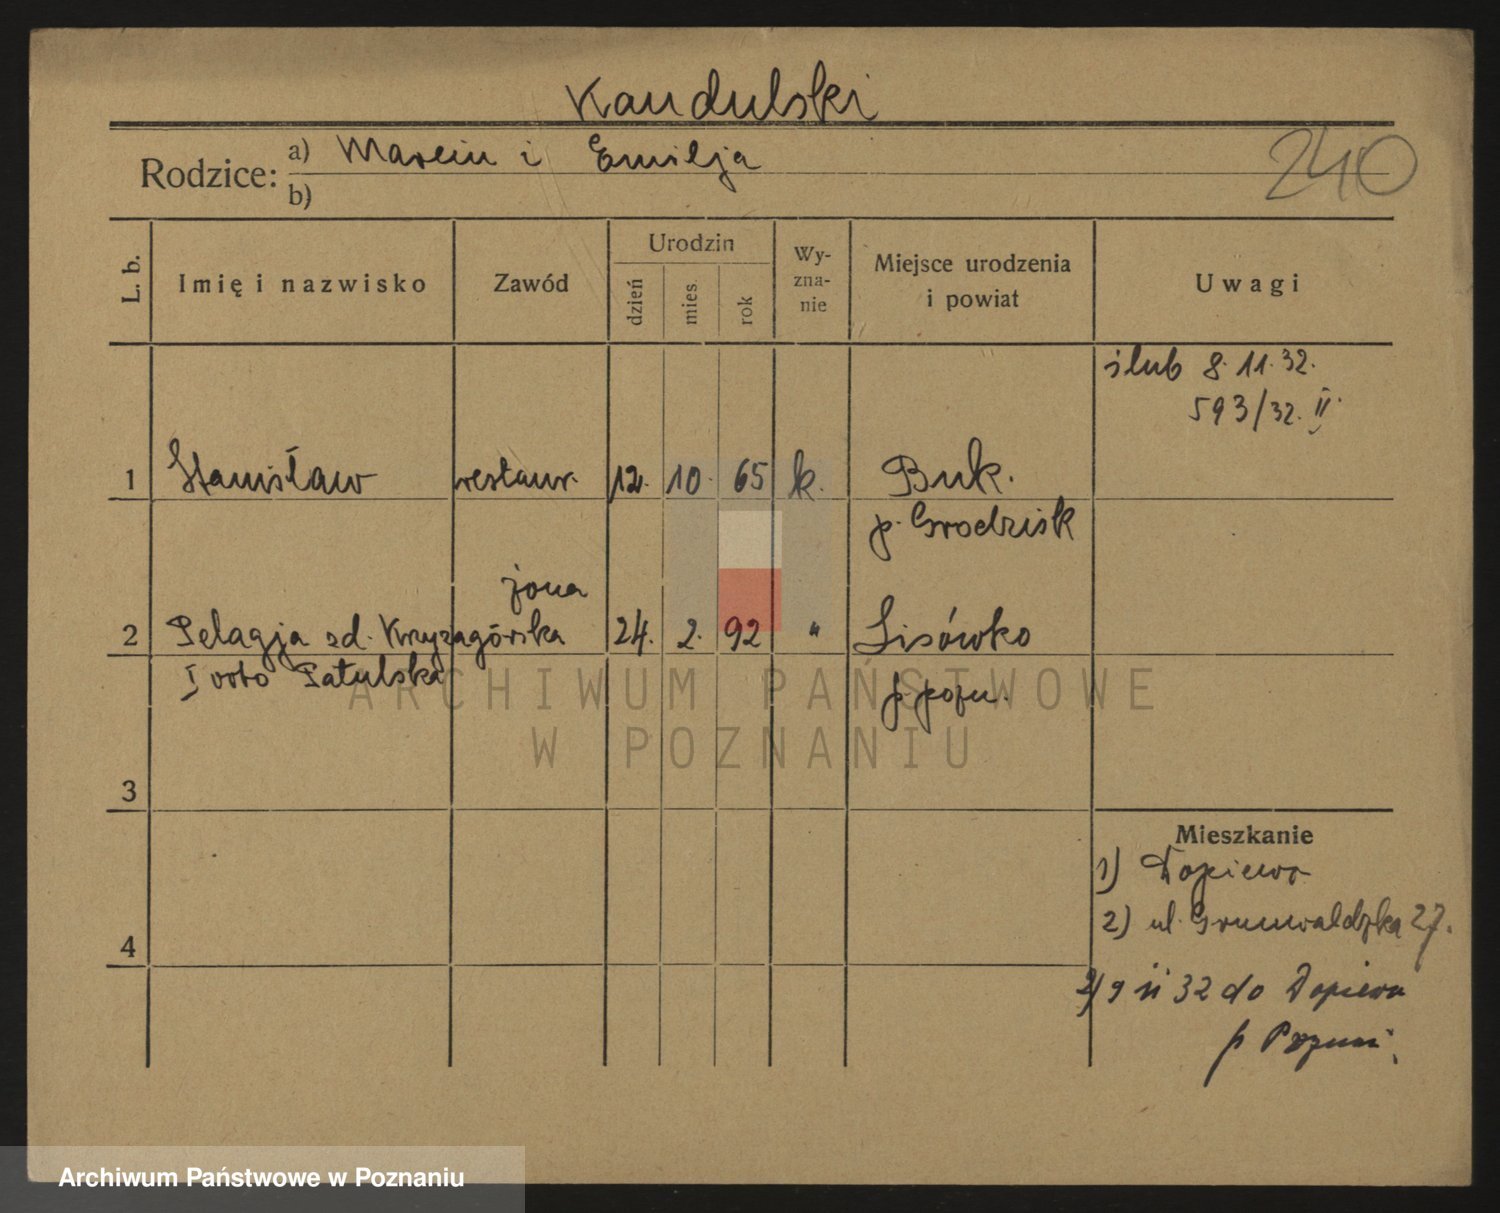 Kaudulski
Rodzice: a) Marcin i Emilja
240
b)
L. b.
Imię i nazwisko
Zawód
Urodzin
dzień
mies.
rok
Wy-
zna-
nie
Miejsce urodzenia
i powiat
Uwagi
ślub 8.11.32.
593/32. II
1 Stanisław restaur. 12. 10. 65 k. Buk.
p. Grodzisk
żona
2 Pelagja zd. Krzyżagórska 24. 2. 92 " Lisówko
I voto Patulska
p. pozn.
ARCHIWUM PAŃSTWOWE
W POZNANIU
3
Mieszkanie
1) Dopiewo
2) ul. Grunwaldzka 27.
4
2) 9 11 32 do Dopiewa
Archiwum Państwowe w Poznaniu